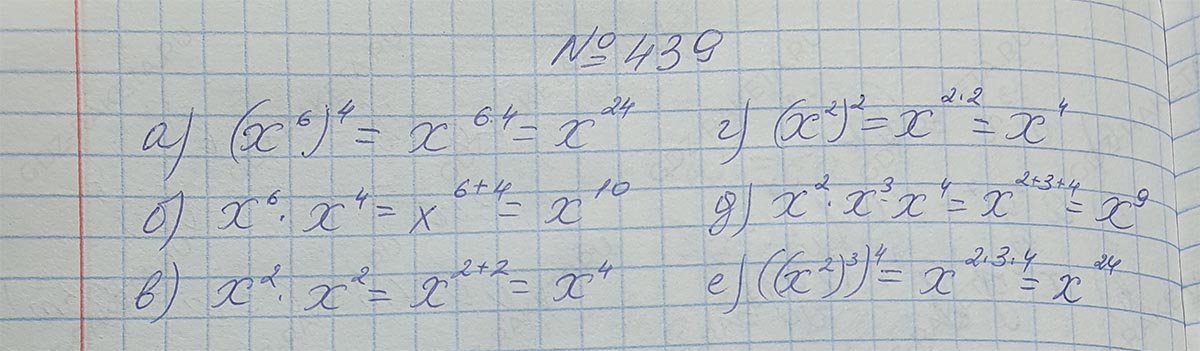 № 439
а) (x⁶)⁴ = x⁶·⁴ = x²⁴
б) x⁶ · x⁴ = x⁶⁺⁴ = x¹⁰
в) x² · x² = x²⁺² = x⁴
г) (x²)² = x²·² = x⁴
д) x² · x³ · x⁴ = x²⁺³⁺⁴ = x⁹
е) ((x²)³)⁴ = x²·³·⁴ = x²⁴